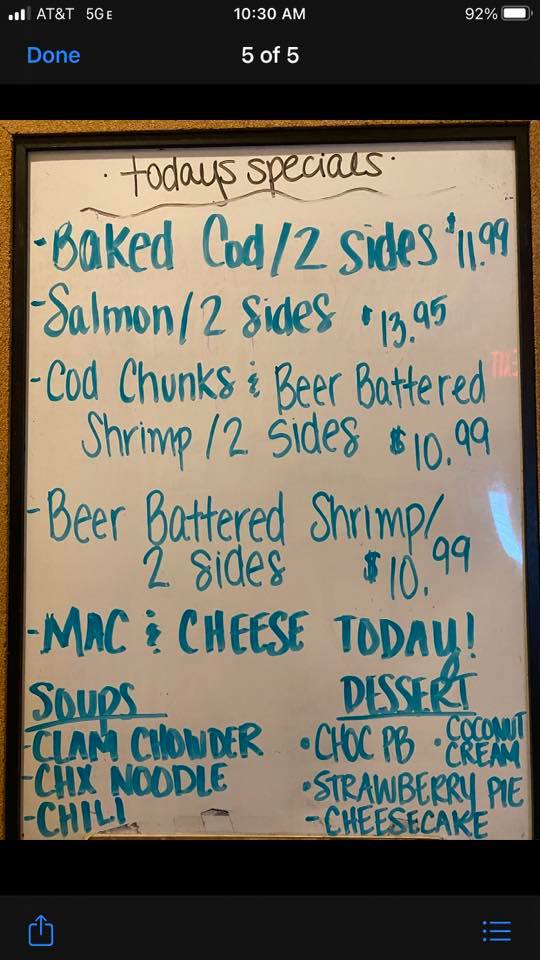 AT&T 5GE 10:30 AM 92%
Done 5 of 5
· todays specials ·
-Baked Cod/2 sides $11.99
-Salmon/2 sides $13.95
-Cod Chunks & Beer Battered
Shrimp/2 sides $10.99
-Beer Battered Shrimp/
2 sides $10.99
-MAC & CHEESE TODAY!
SOUPS
-CLAM CHOWDER
-CHX NOODLE
-CHILI
DESSERT
•CHOC PB •COCONUT
CREAM
•STRAWBERRY PIE
-CHEESECAKE